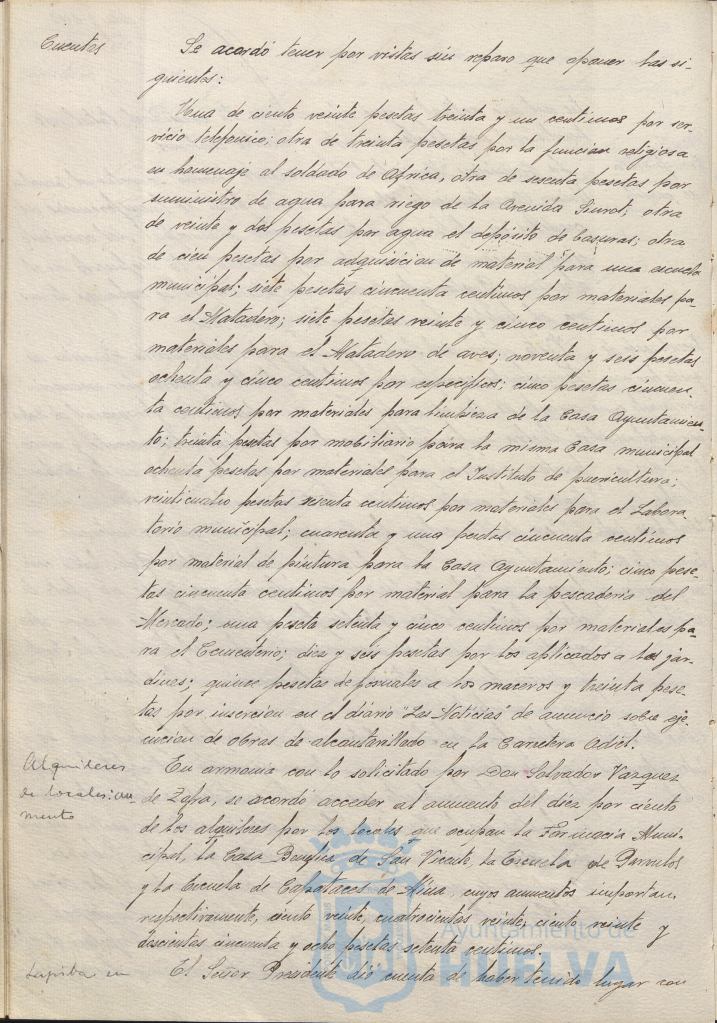 Cuentas
Se acordó tener por vistas sin reparo que oponer las si-
guientes:
Una de ciento veinte pesetas treinta y un centimos por ser-
vicio telefonico; otra de treinta pesetas por la funcion religiosa
en homenaje al soldado de Africa, otra de sesenta pesetas por
suministro de agua para riego de la Avenida Siurot; otra
de veinte y dos pesetas por agua el depósito de basuras; otra
de cien pesetas por adquisicion de material para una escuela
municipal; siete pesetas cincuenta centimos por materiales pa-
ra el Matadero; siete pesetas veinte y cinco centimos por
materiales para el Matadero de aves; noventa y seis pesetas
ochenta y cinco centimos por especificos; cinco pesetas cincuen-
ta centimos por materiales para limpieza de la Casa Ayuntamien-
to; treinta pesetas por mobiliario para la misma Casa municipal
ochenta pesetas por materiales para el Instituto de puericultura;
veinticuatro pesetas sesenta centimos por materiales para el Labora
torio municipal; cuarenta y una pesetas cincuenta centimos
por material de pintura para la Casa Ayuntamiento; cinco pese-
tas cincuenta centimos por material para la pescaderia del
Mercado; una peseta setenta y cinco centimos por materiales pa-
ra el Cementerio; diez y seis pesetas por los aplicados a los jar-
dines; quince pesetas de jornales a los maceros y treinta pese-
tas por insercion en el diario "Las Noticias" de anuncio sobre eje-
cucion de obras de alcantarillado en la Carretera Odiel.
Alquileres
de locales: au-
mento
En armonia con lo solicitado por Don Salvador Vazquez
de Zafra, se acordó acceder al aumento del diez por ciento
de los alquileres por los locales que ocupan la Farmacia Muni-
cipal, la Casa Benefica de San Vicente, la Escuela de Parvulos
y la Escuela de Capataces de Mina, cuyos aumentos importan,
respectivamente, ciento veinte, cuatrocientas veinte, ciento veinte y
doscientas cincuenta y ocho pesetas setenta centimos.
en
El Señor Presidente dió cuenta de haber tenido lugar con
Ayuntamiento de
HUELVA